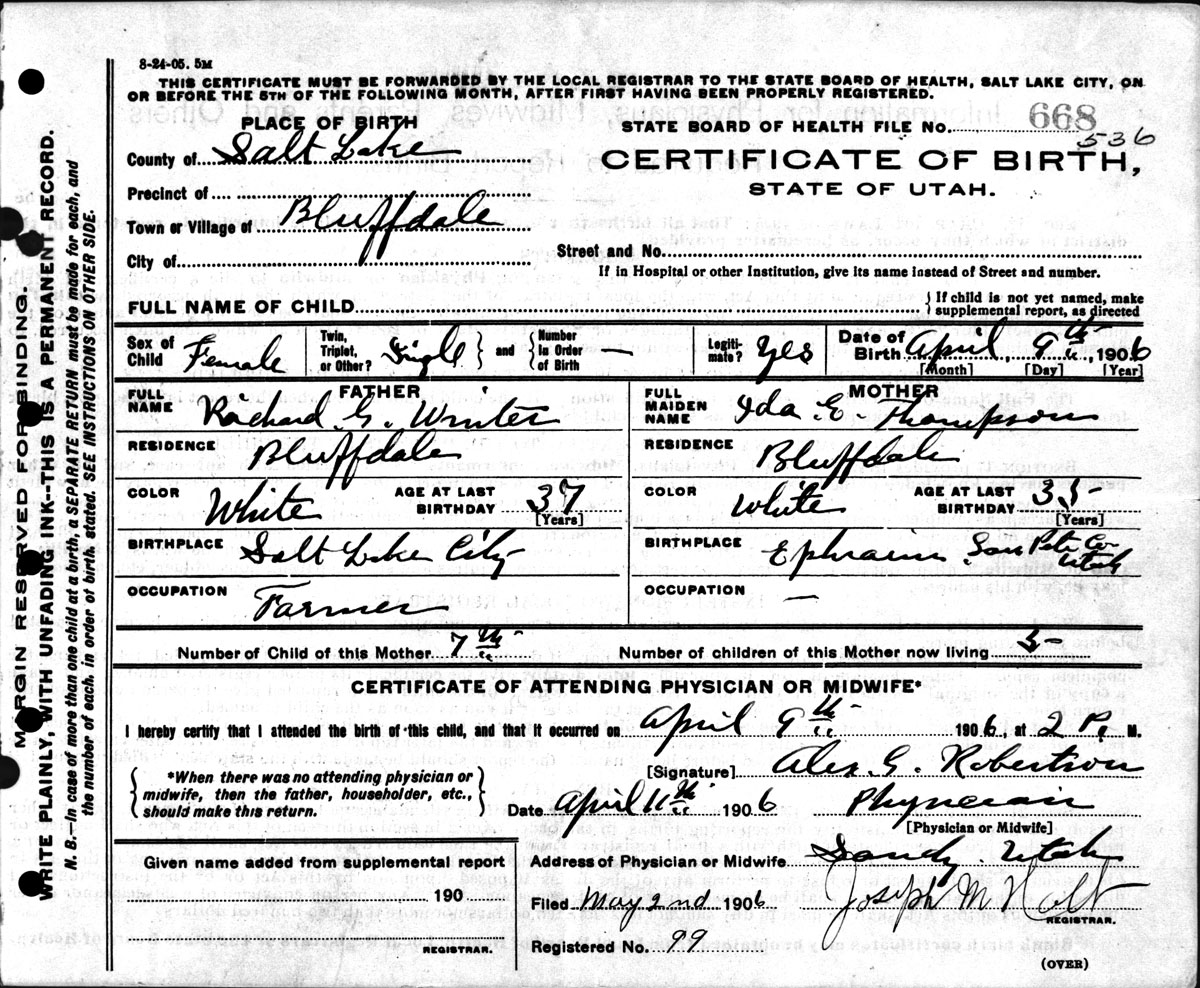 8-24-05. 5M
THIS CERTIFICATE MUST BE FORWARDED BY THE LOCAL REGISTRAR TO THE STATE BOARD OF HEALTH, SALT LAKE CITY, ON
OR BEFORE THE 5TH OF THE FOLLOWING MONTH, AFTER FIRST HAVING BEEN PROPERLY REGISTERED.
PLACE OF BIRTH
STATE BOARD OF HEALTH FILE No. 668
536
County of Salt Lake
CERTIFICATE OF BIRTH,
STATE OF UTAH.
Precinct of
Town or Village of Bluffdale
City of
Street and No.
If in Hospital or other Institution, give its name instead of Street and number.
FULL NAME OF CHILD
{ If child is not yet named, make
supplemental report, as directed
Sex of Child Female
Twin, Triplet, or Other? Single } and { Number in Order of Birth —
Legiti-mate? Yes
Date of Birth April 9th, 1906
[Month] [Day] [Year]
FATHER
FULL NAME Richard G. Winter
RESIDENCE Bluffdale
COLOR White AGE AT LAST BIRTHDAY 37
[Years]
BIRTHPLACE Salt Lake City
OCCUPATION Farmer
MOTHER
FULL MAIDEN NAME Ida E. Thompson
RESIDENCE Bluffdale
COLOR White AGE AT LAST BIRTHDAY 35
[Years]
BIRTHPLACE Ephraim San Pete Co. Utah
OCCUPATION —
Number of Child of this Mother 7th
Number of children of this Mother now living 5
CERTIFICATE OF ATTENDING PHYSICIAN OR MIDWIFE*
I hereby certify that I attended the birth of this child, and that it occurred on April 9th 1906, at 2 P. M.
{ *When there was no attending physician or
midwife, then the father, householder, etc.,
should make this return. }
[Signature] Alex. G. Robertson
Date April 11th 1906 Physician
[Physician or Midwife]
Given name added from supplemental report
190
REGISTRAR.
Address of Physician or Midwife Sandy. Utah
Filed May 2nd 1906 Joseph M Holt
REGISTRAR.
Registered No. 99
(OVER)
MARGIN RESERVED FOR BINDING.
WRITE PLAINLY, WITH UNFADING INK--THIS IS A PERMANENT RECORD.
N. B.—In case of more than one child at a birth, a SEPARATE RETURN must be made for each, and
the number of each, in order of birth, stated. SEE INSTRUCTIONS ON OTHER SIDE.